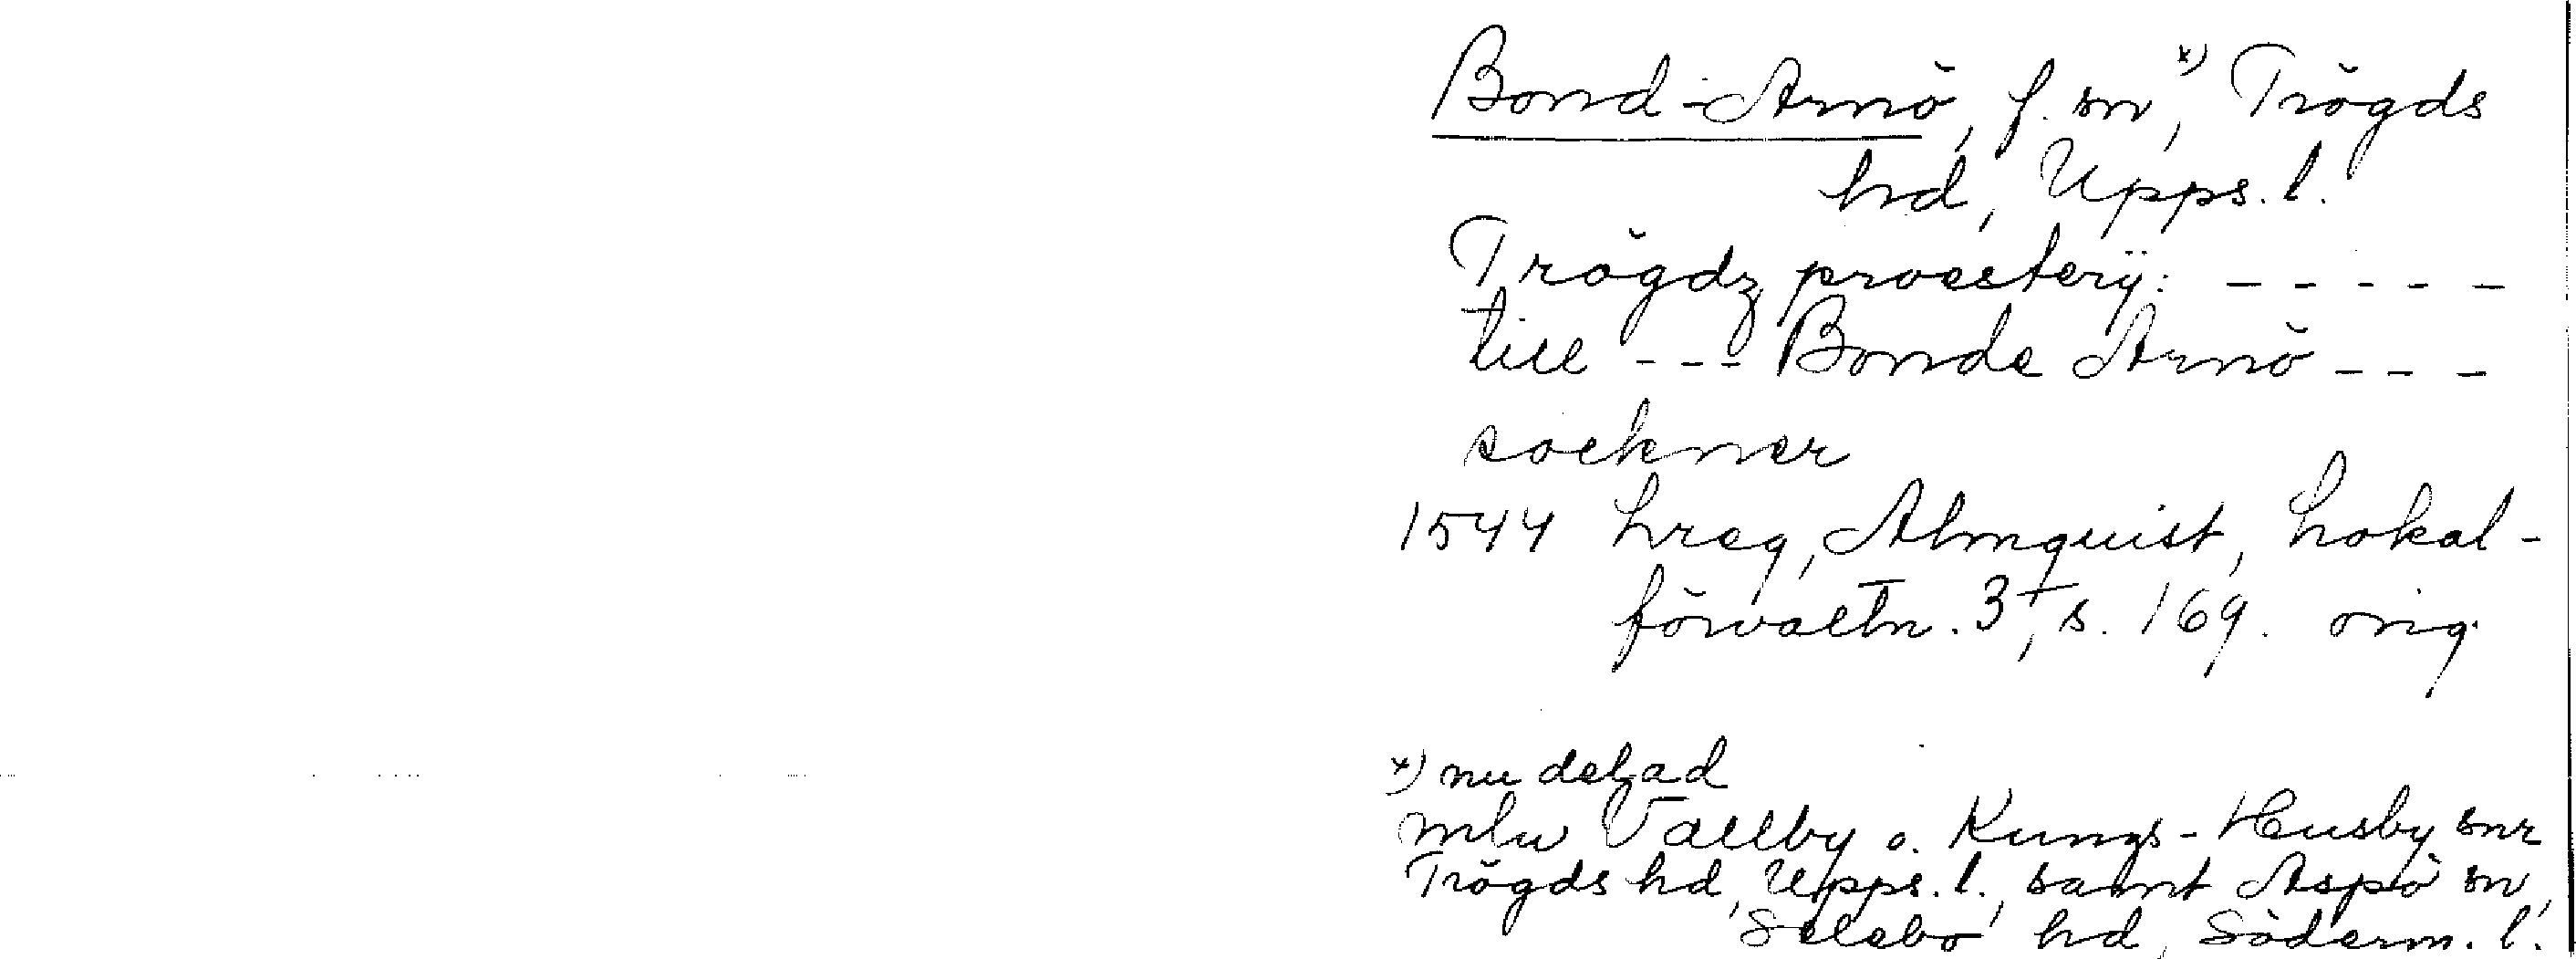 Bond-Arnö, f. sn,*) Trögds
hd, Upps. l.
Trögdz proesterÿ: - - - - -
till - - - Bonde Arnö - - -
sockner
1544 Lreg, Almquist, Lokal-
förvaltn. 3, s. 169. orig.
*) nu delad
mln Vallby o. Kungs-Husby snr
Trögds hd, Upps. l., samt Aspö sn,
Selebo hd, Söderm. l.